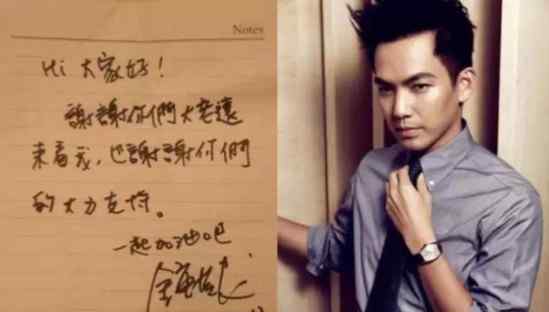 Notes
Hi 大家好！
謝謝你們大老遠
來看我，也謝謝你們
的大力支持。
一起加油吧